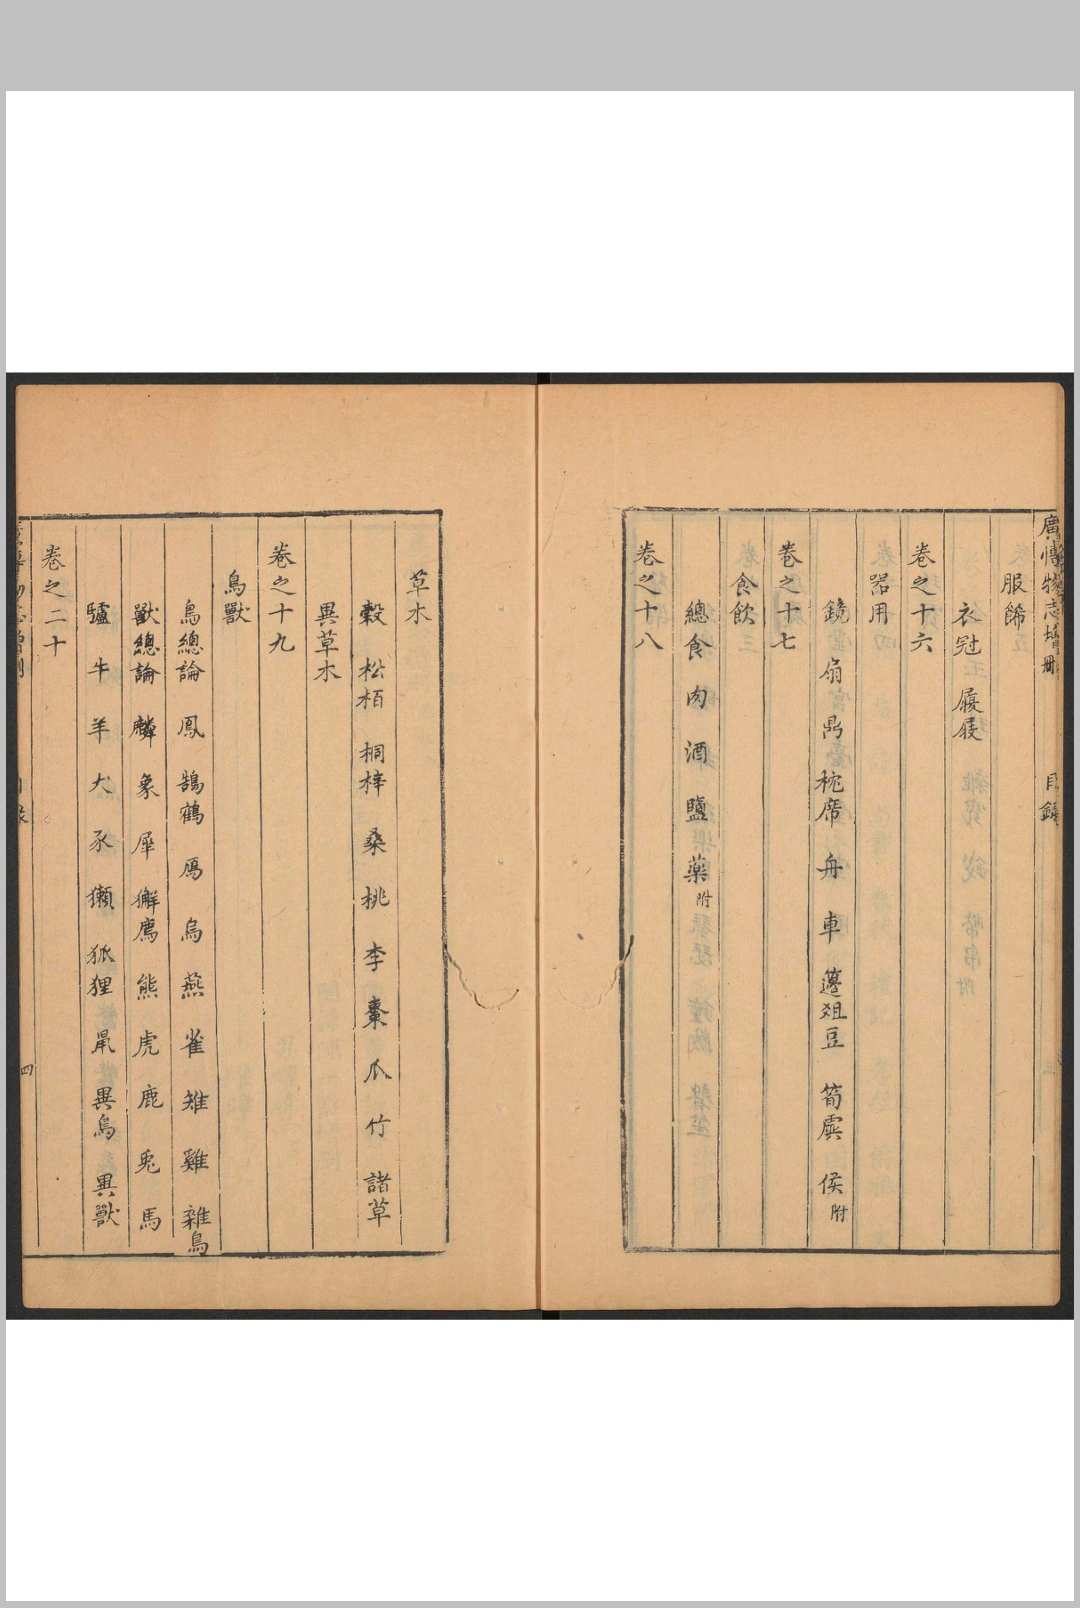 廣博物志增刪 目錄
服餙
衣冠 履屐
卷之十六
器用
鏡 扇 鼎 枕席 舟 車 籩俎豆 筍虡 侯附
卷之十七
食飲
總食 肉 酒 鹽 藥附
卷之十八
草木
穀 松栢 桐梓 桑 桃 李 棗 瓜 竹 諸草
異草木
卷之十九
鳥獸
鳥總論 鳳 鵠鶴 鴈 烏 燕 雀 雉 雞 雜鳥
獸總論 麟 象 犀 獬廌 熊 虎 鹿 兎 馬
驢 牛 羊 犬 豕 獺 狐狸 鼠 異鳥 異獸
卷之二十
四